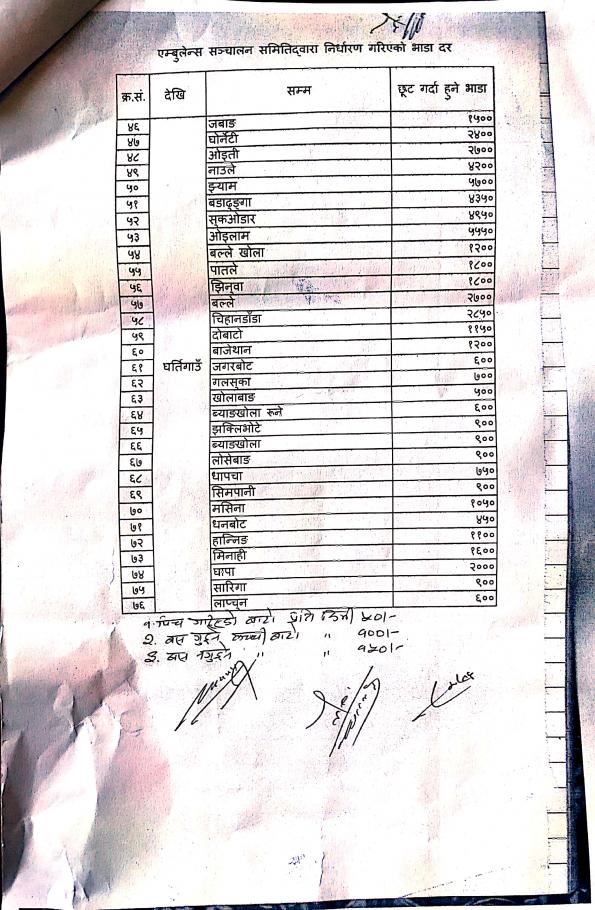 एम्बुलेन्स सञ्चालन समितिद्वारा निर्धारण गरिएको भाडा दर
क्र.सं. देखि सम्म छूट गर्दा हुने भाडा
४६ जबाङ १५००
४७ घोर्नेटी २४००
४८ ओइती २७००
४९ नाउले ४२००
५० झ्याम ५७००
५१ बडाढुङ्गा ४३५०
५२ सुकओडार ४९५०
५३ ओइलाम ५५५०
५४ बल्ले खोला १२००
५५ पातले १८००
५६ झिनुवा १८००
५७ बल्ले २७००
५८ चिहानडाँडा २८५०
५९ दोबाटो ११५०
६० बाजेथान १२००
६१ घर्तिगाउँ जगरबोट ६००
६२ गलसुका ७००
६३ खोलाबाङ ५००
६४ ब्याङखोला रुने ६००
६५ झक्लिभोटे ९००
६६ ब्याङखोला ९००
६७ लोसेबाङ ९००
६८ धापचा ७५०
६९ सिमपानी ९००
७० मसिना १०५०
७१ धनबोट ४५०
७२ हान्निङ ११००
७३ मिनाही १६००
७४ घापा २०००
७५ सारिगा ९००
७६ लाप्चुन ६००
१. पिच बाटो प्रति कि.मी ५०।-
२. बस गुड्ने कच्ची बाटो " १००।-
३. बस नगुड्ने " " १५०।-